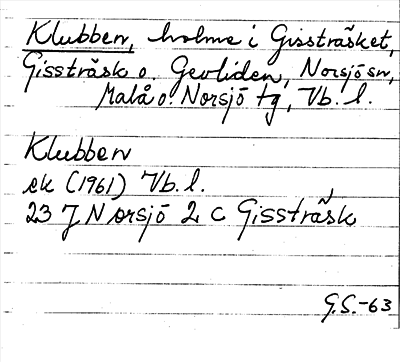 Klubben, holme i Gissträsket,
Gissträsk o. Gevliden, Norsjö sn,
Malå o. Norsjö tg, Vb. l.
Klubben
ek (1961) Vb. l.
23 J Norsjö 2 c Gissträsk
G.S.-63